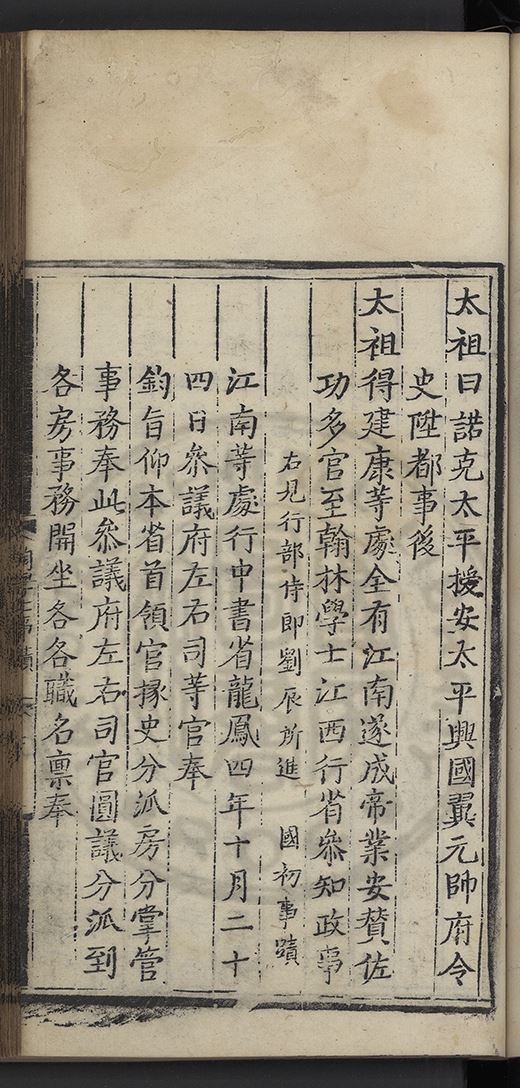 太祖曰諾克太平授安太平興國翼元帥府令
史陞都事後
太祖得建康等處全有江南遂成帝業安贊佐
功多官至翰林學士江西行省叅知政事
右見行部侍郎劉辰所進 國初事蹟
江南等處行中書省龍鳳四年十月二十
四日叅議府左右司等官奉
鈞旨仰本省首領官掾史分派房分掌管
事務奉此叅議府左右司官圓議分派到
各房事務開坐各各職名禀奉